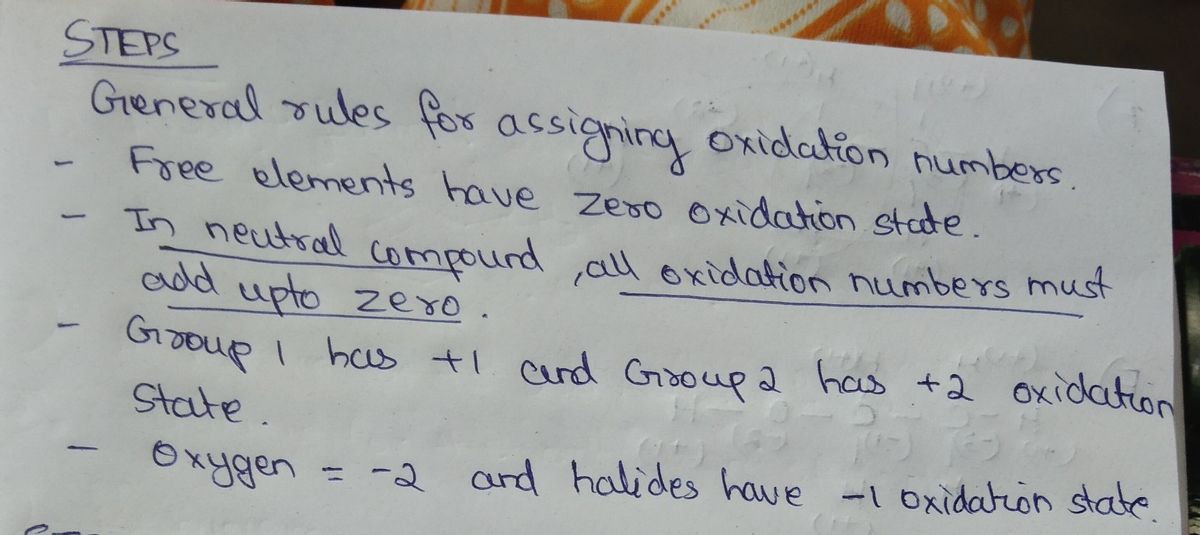 STEPS
General rules for assigning oxidation numbers.
- Free elements have zero oxidation state.
- In neutral compound, all oxidation numbers must
add upto zero.
- Group 1 has +1 and Group 2 has +2 oxidation
State.
- Oxygen = -2 and halides have -1 oxidation state.